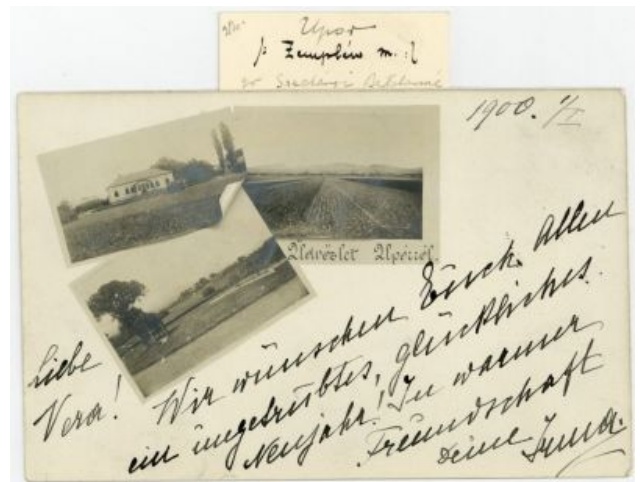 Upor
Zemplén m.
1900. 1/I
Üdvözlet Upórról.
Liebe
Vera! Wir wünschen Euch Allen
ein ungetrübtes, glückliches
Neujahr! In warmer
Freundschaft
Deine Irma.